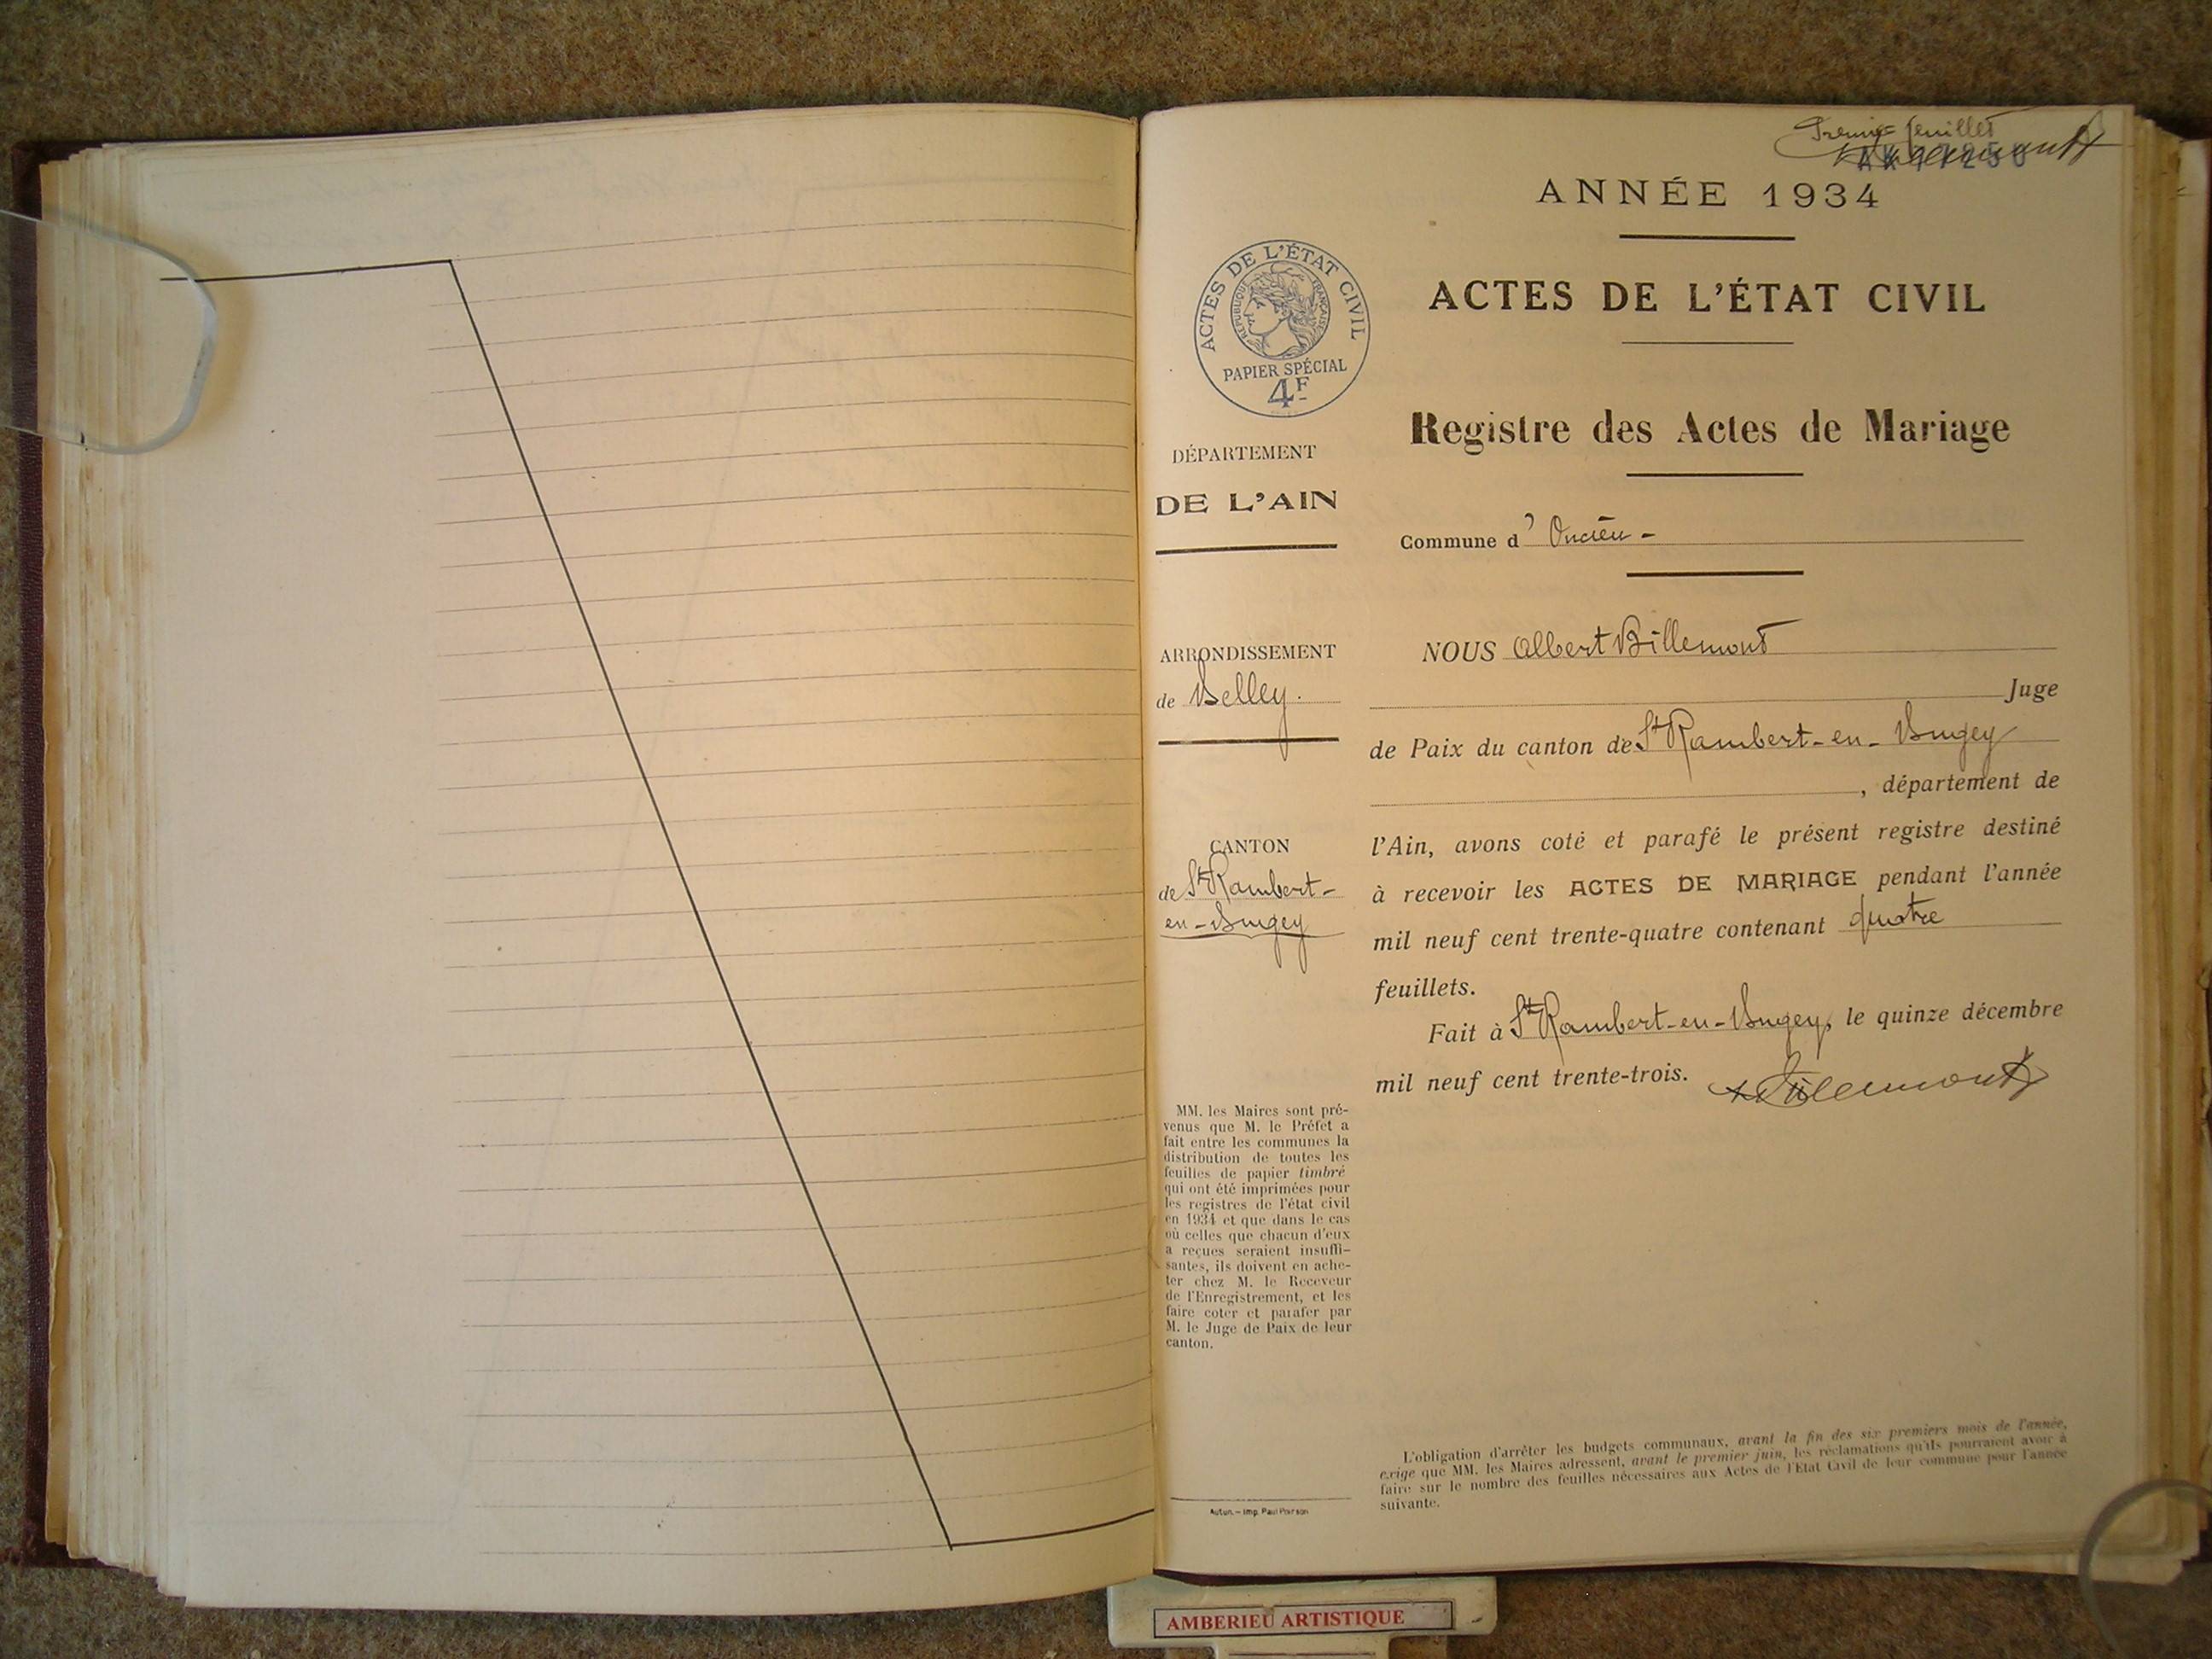 Premier feuillet
ANNÉE 1934
ACTES DE L'ÉTAT CIVIL
RÉPUBLIQUE FRANÇAISE
PAPIER SPÉCIAL
4F
ACTES DE L'ÉTAT CIVIL
Registre des Actes de Mariage
DÉPARTEMENT
DE L'AIN
Commune d'Oncieu -
ARRONDISSEMENT
de Belley.
CANTON
de St Rambert-
en-Bugey
NOUS Albert Billemont
Juge
de Paix du canton de St Rambert-en-Bugey
, département de
l'Ain, avons coté et parafé le présent registre destiné
à recevoir les ACTES DE MARIAGE pendant l'année
mil neuf cent trente-quatre contenant quatre
feuillets.
Fait à St Rambert-en-Bugey, le quinze décembre
mil neuf cent trente-trois.
Billemont
MM. les Maires sont pré-
venus que M. le Préfet a
fait entre les communes la
distribution de toutes les
feuilles de papier timbré
qui ont été imprimées pour
les registres de l'état civil
en 1934 et que dans le cas
où celles que chacun d'eux
a reçues seraient insuffi-
santes, ils doivent en ache-
ter chez M. le Receveur
de l'Enregistrement, et les
faire coter et parafer par
M. le Juge de Paix de leur
canton.
Autun. – Imp. Paul Poirson
L'obligation d'arrêter les budgets communaux, avant la fin des six premiers mois de l'année,
exige que MM. les Maires adressent, avant le premier juin, les réclamations qu'ils pourraient avoir à
faire sur le nombre des feuilles nécessaires aux Actes de l'Etat Civil de leur commune pour l'année
suivante.
AMBERIEU ARTISTIQUE